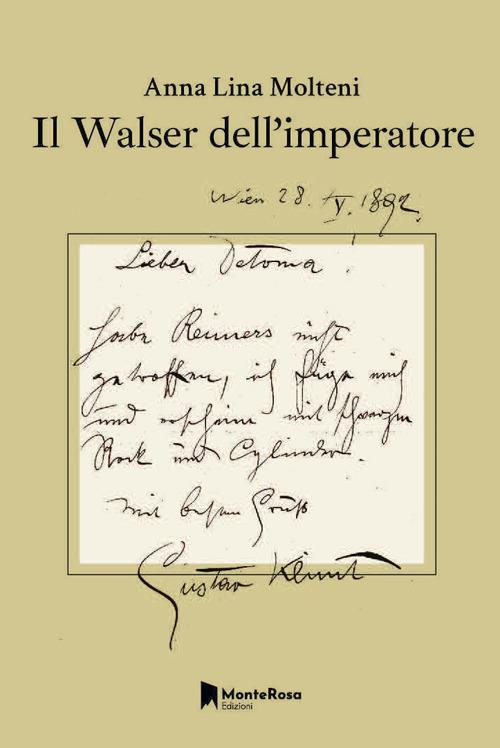 Anna Lina Molteni
Il Walser dell'imperatore
Wien 28. V. 1892.
Lieber Detoma!
Habe Reimers nicht
getroffen, ich füge mich
und erscheine mit schwarzem
Rock und Cylinder.
Mit besten Gruß
Gustav Klimt
MonteRosa
Edizioni